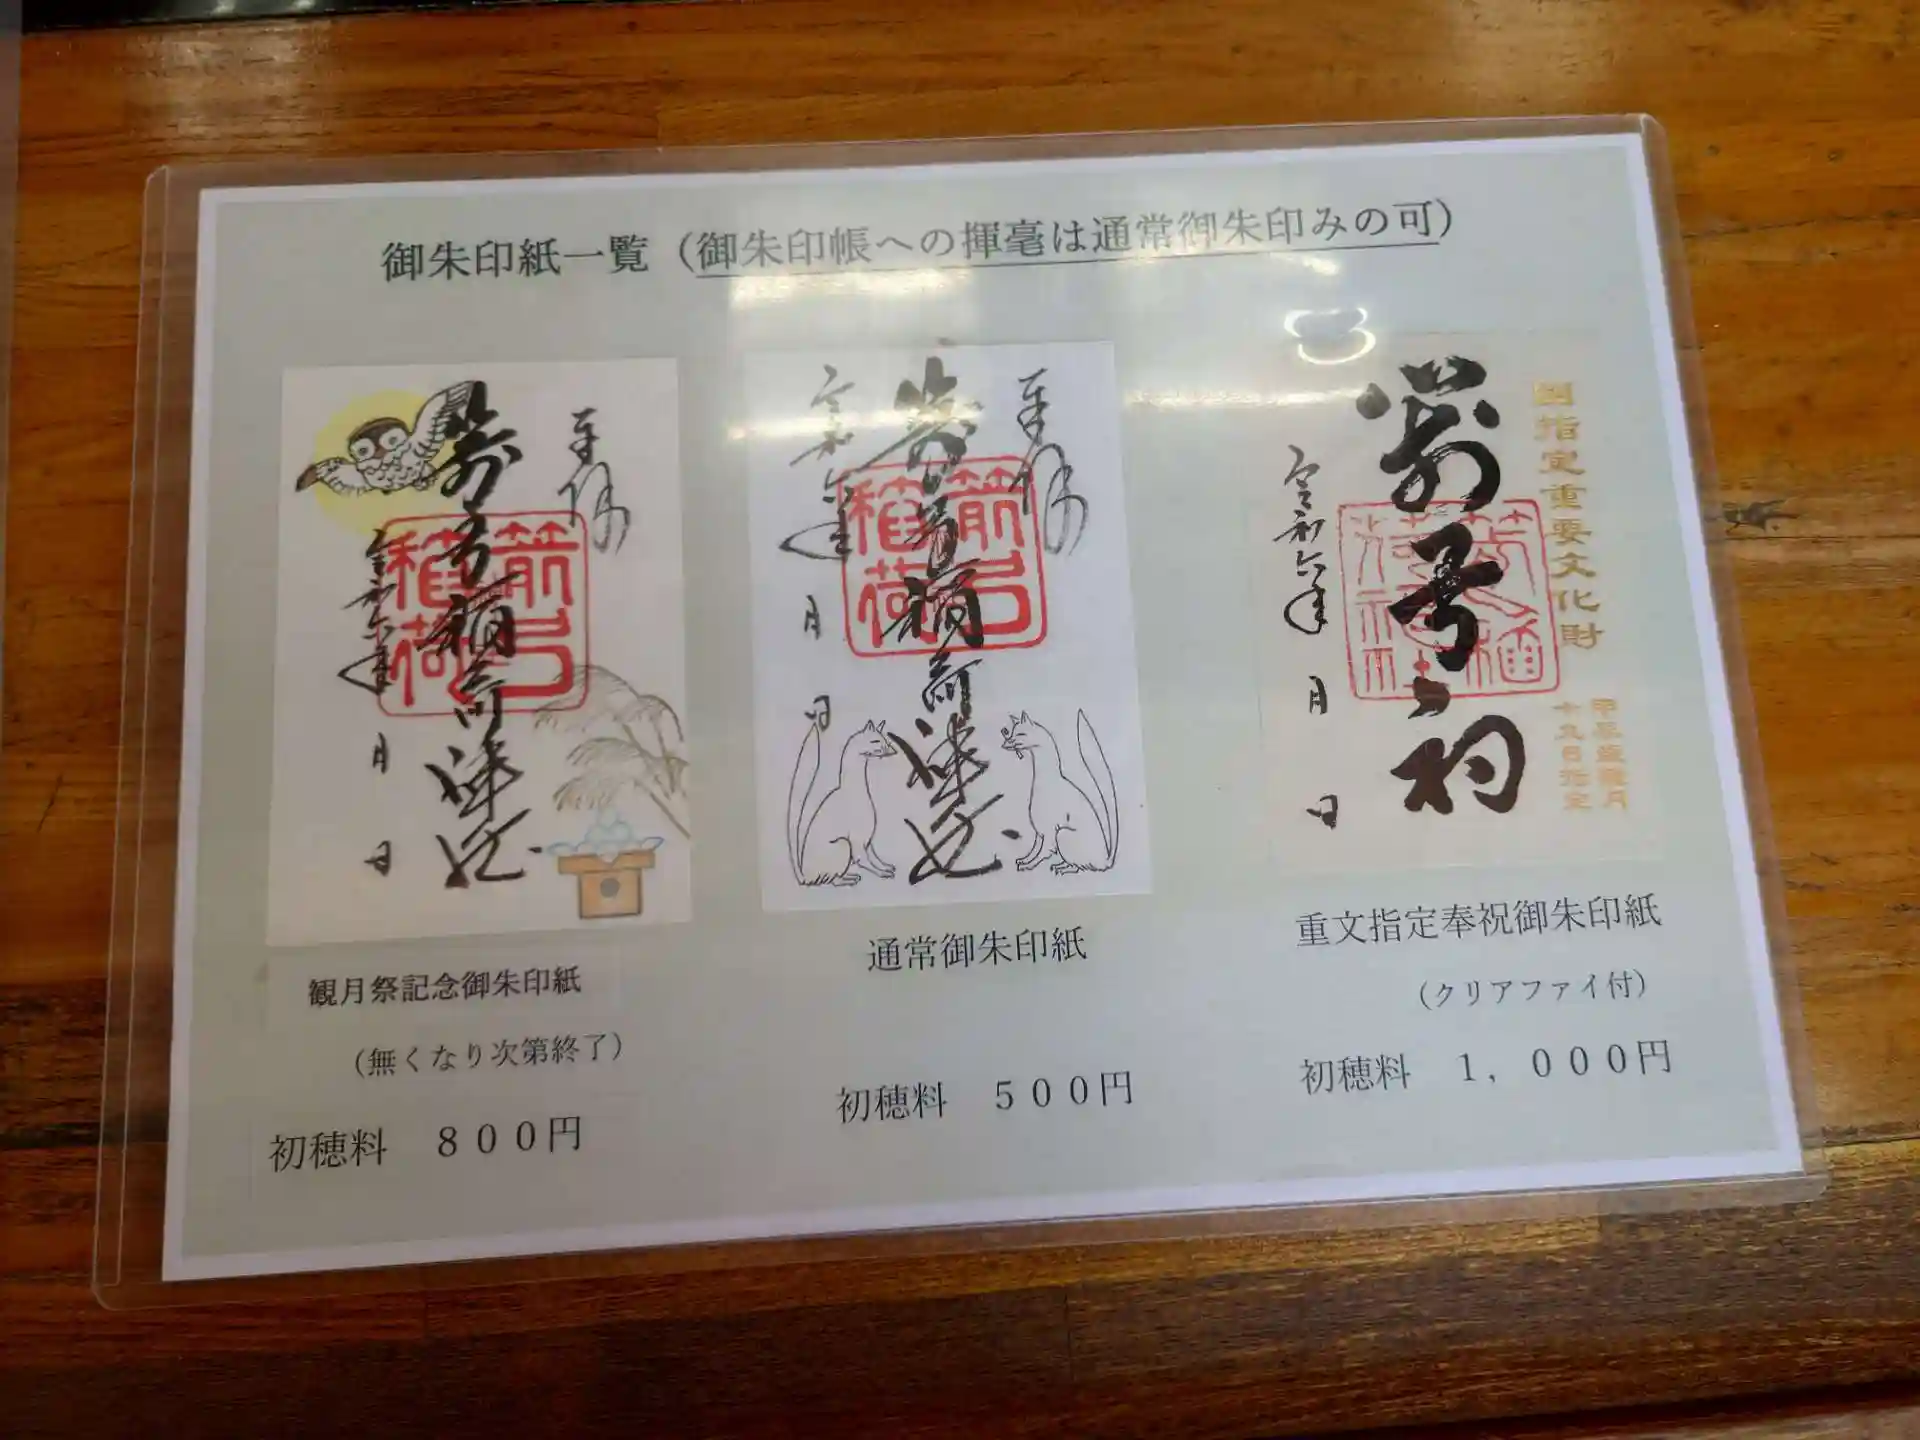 御朱印紙一覧（御朱印帳への揮毫は通常御朱印みの可）
奉拝
箭弓稲荷神社
箭弓
稲荷
令和六年
月
日
観月祭記念御朱印紙
（無くなり次第終了）
初穂料　８００円
奉拝
箭弓稲荷神社
箭弓
稲荷
令和六年
月　日
通常御朱印紙
初穂料　５００円
国指定重要文化財
十九日指定
箭弓
令和六年
月
日
重文指定奉祝御朱印紙
（クリアファイ付）
初穂料　１，０００円